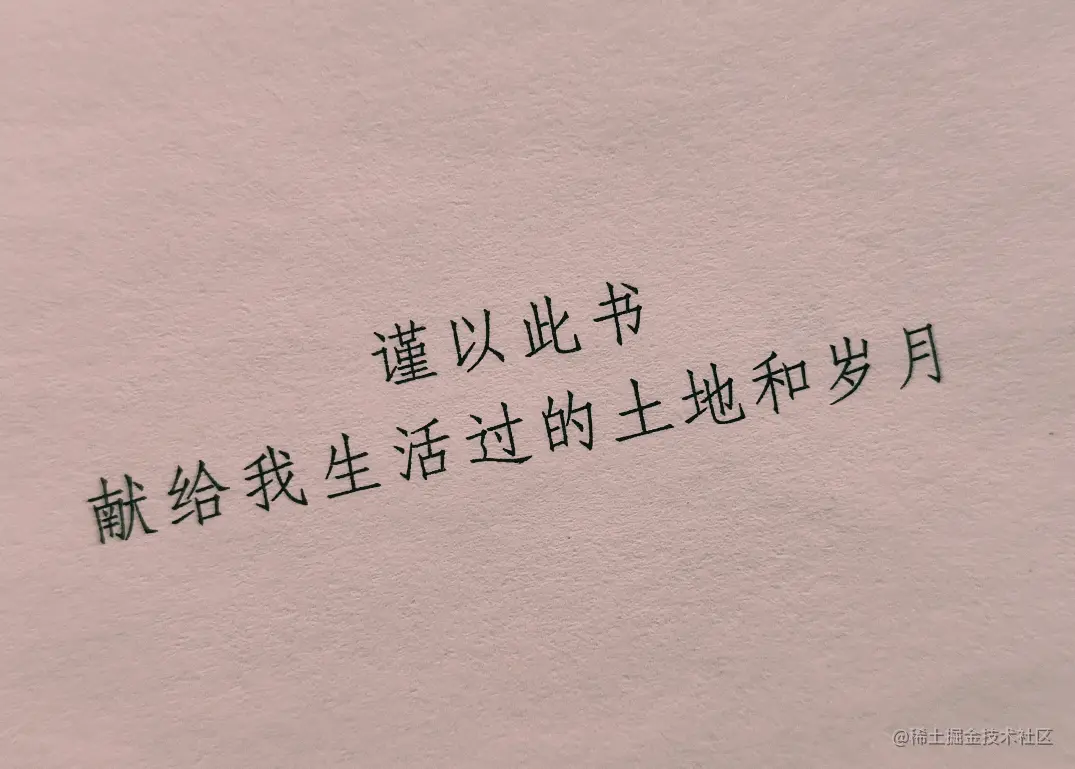 谨以此书
献给我生活过的土地和岁月
@稀土掘金技术社区